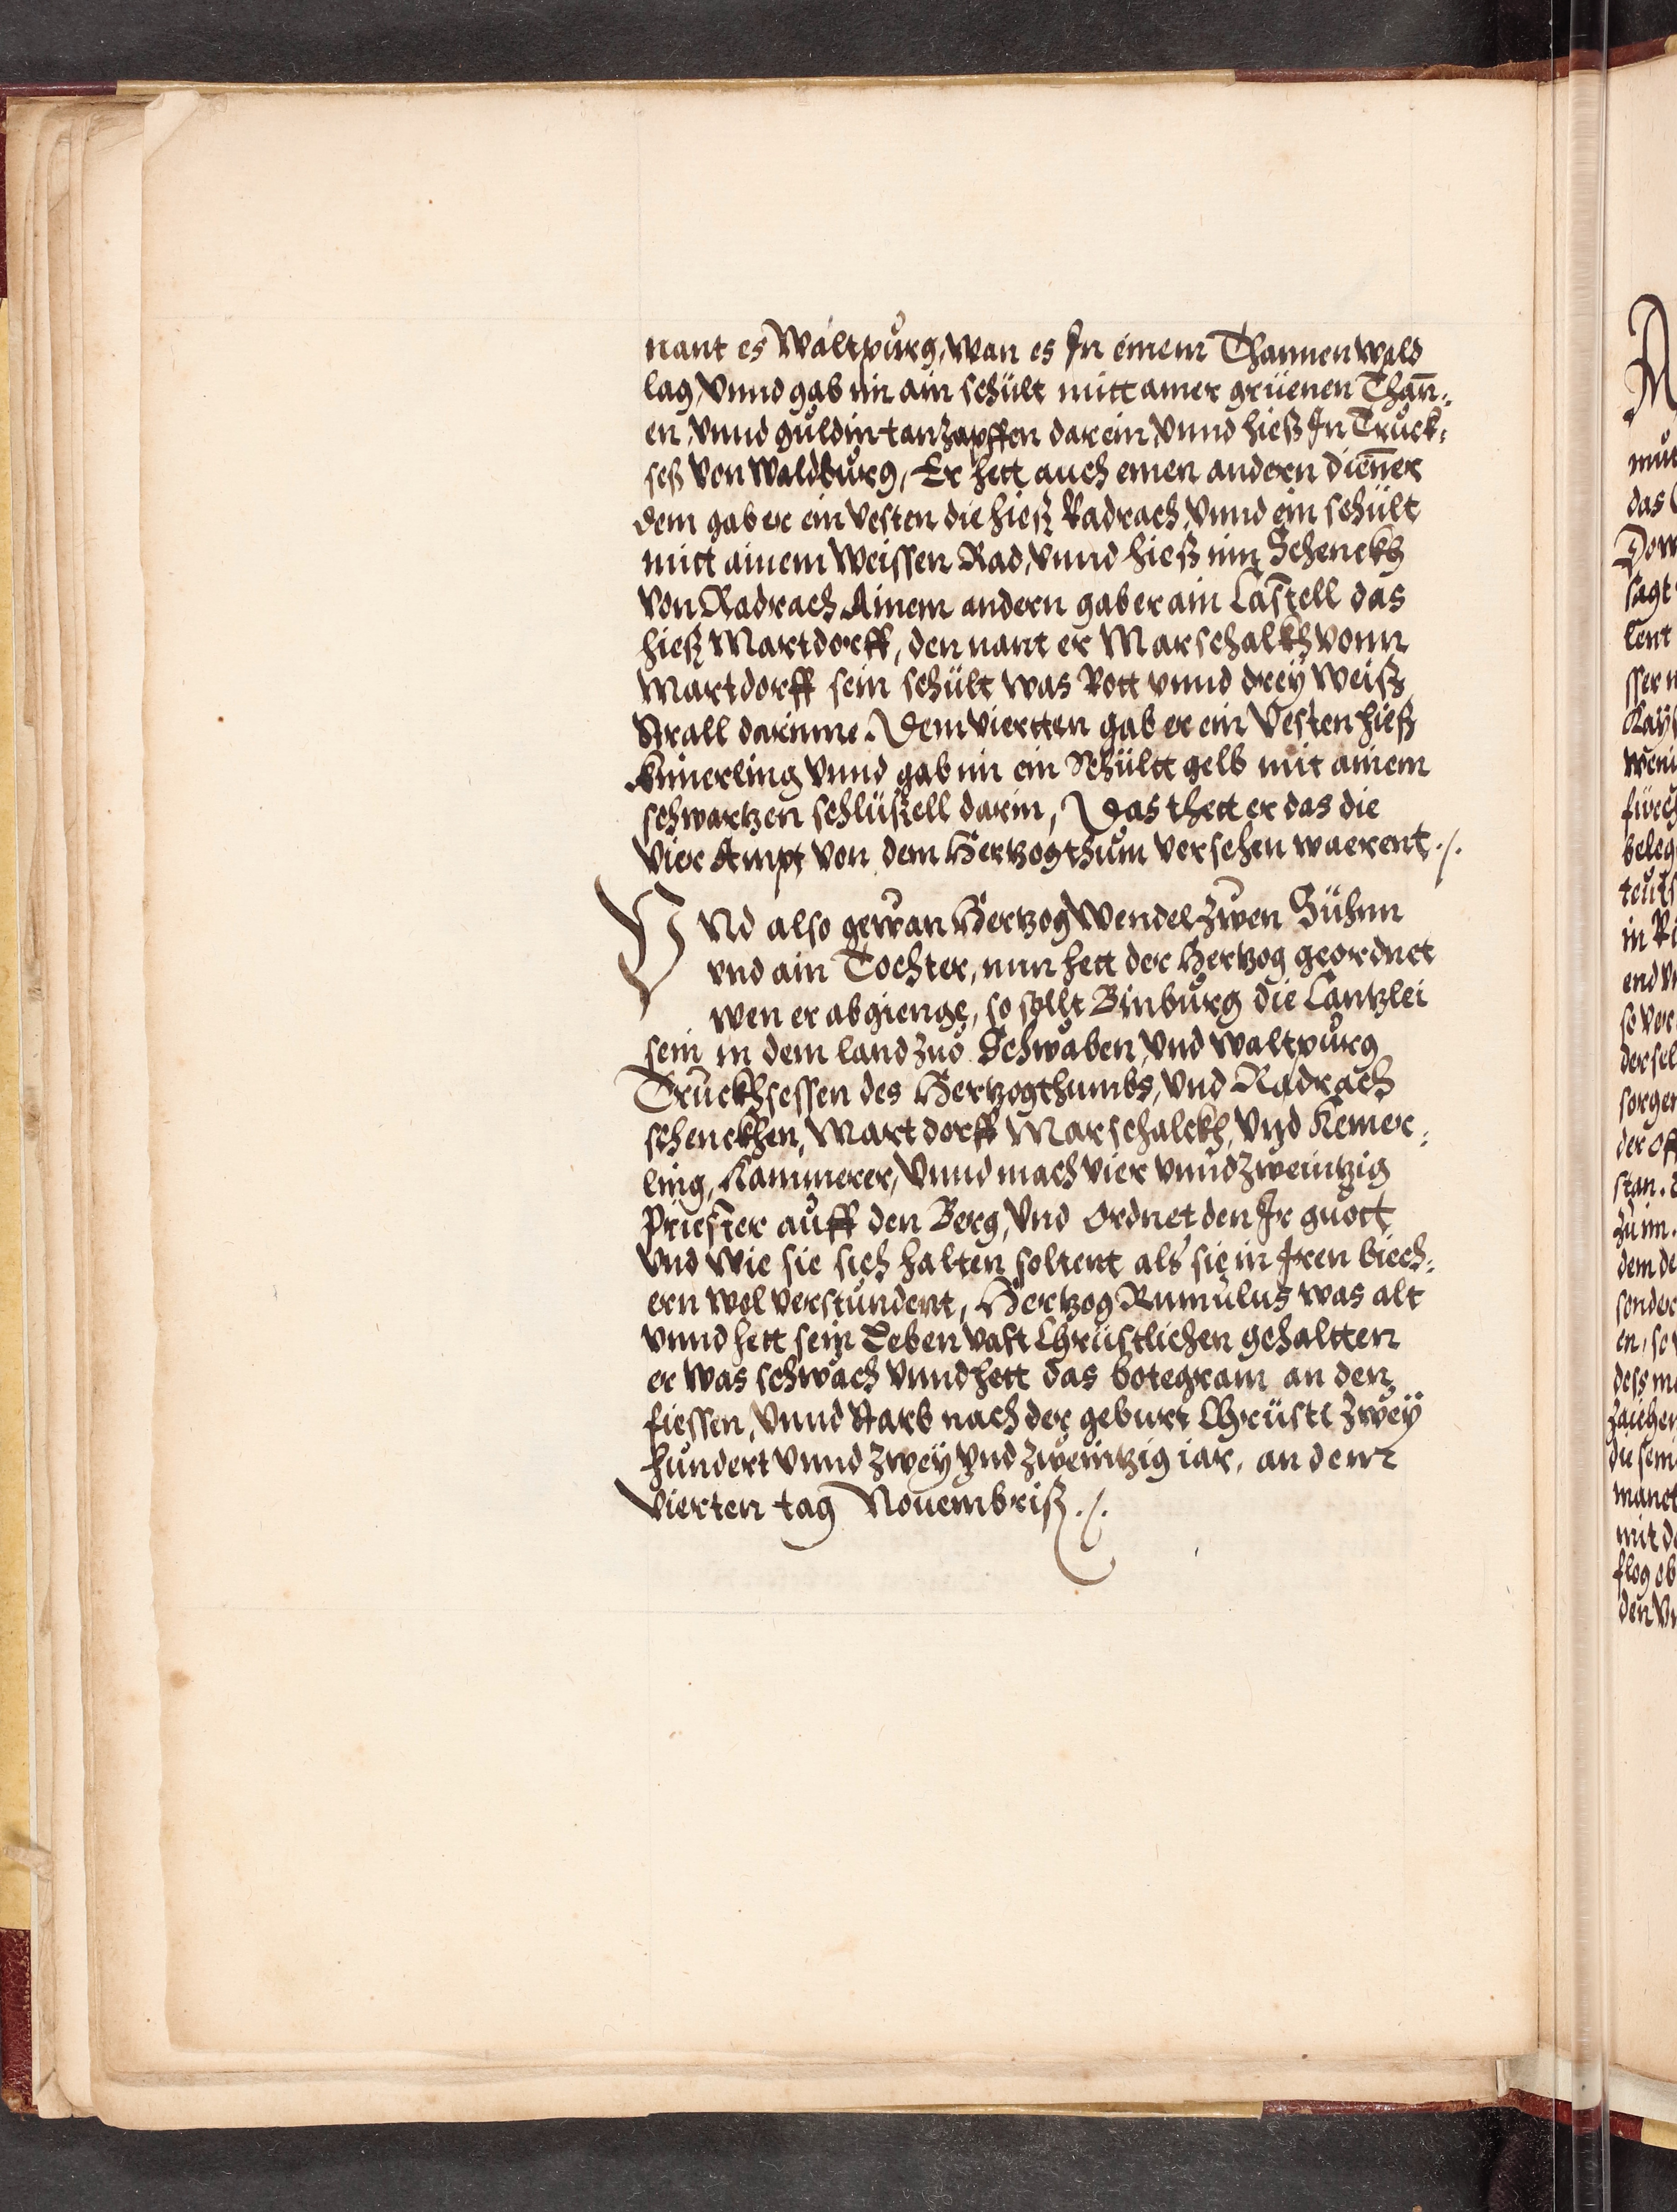 nant es Waltpurg, wan es In einem Thannen wald
lag, vnnd gab im ain schült mitt ainer grüenen Thañ¬
en, vnnd guldin tanzapffen darein, vnnd hieß In Truck¬
seß von Waldburg, Er hett auch einen andern dienner
dem gab er ein vesten die hieß Radrach, vnnd ein schült
mitt ainem Weissen Rad, vnnd hieß inn Schenckh
von Radrach Ainem andern gab er ain Castell das
hieß Martdorff, den nant er Marschalkh vonn
Martdorff sein schült was Rott vnnd drey Weiß
Strall darinne. Dem viertten gab er ein Vesten hieß
Kimerling vnnd gab im ein Schültt gelb mit ainem
schwartzen schlüßell darin, Das thett er das die
vier Ampt von dem Hertzogthum versehen waerent ./.
VNd also gewan Hertzog Wendel zwen Sühnn
vnd ain Tochter, nun hett der Hertzog geordnet
wen er abgienge, so sollt Binburg die Cantzlei
sein in dem land zuo Schwaben, vnd Waltpurg
Truckhsessen des Hertzogthumbs, vnd Radrach
schenckhen, Martdorff Marschalckh, vnd Kemer¬
ling, Kammerer, vnnd mach vier vnnd zweintzig
Priester auff den Berg, vnd ordnet den Ir guott
vnd wie sie sich halten soltent als sie in Iren biech¬
ern wol verstundent, Hertzog Rumulus was alt
vnnd hett sein Leben vast Chrüstlichen gehaltten
er was schwach vnnd hett das botegram an den
fiessen, vnnd starb nach der geburt Chrüsti zwey
hundert vnnd zwey vnd zweintzig iar, an dem
vierten tag Nouembriß ./.